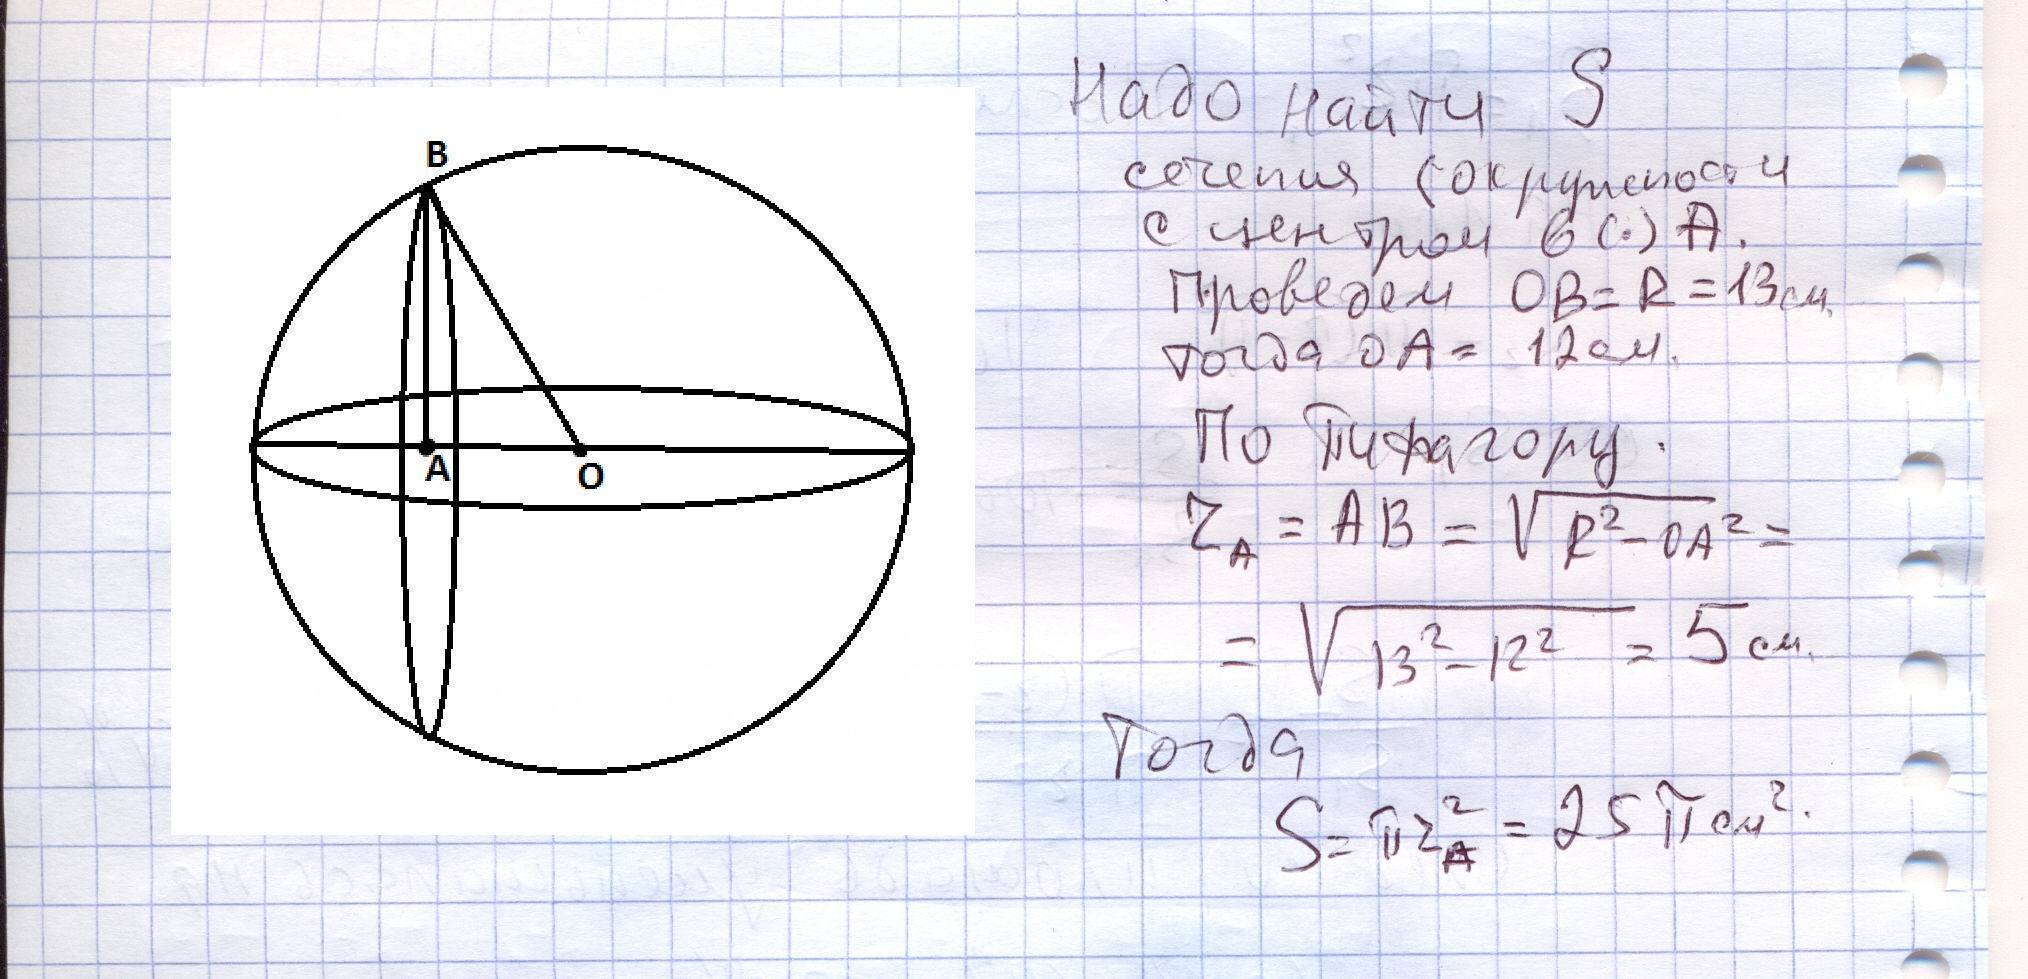 B
A
O
Надо найти S
сечения (окружности
с центром в (·) А.
Проведем OB = R = 13 см.
тогда OA = 12 см.
По Пифагору.
r_A = AB = √(R² - OA²) =
= √(13² - 12²) = 5 см.
Тогда
S = πr_A² = 25 π см².